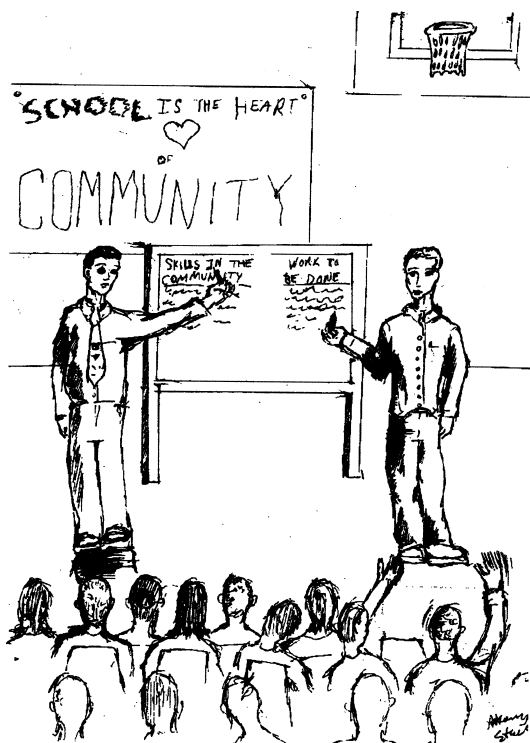 "SCHOOL IS THE HEART"
OF
COMMUNITY
SKILLS IN THE
COMMUNITY
WORK TO
BE DONE